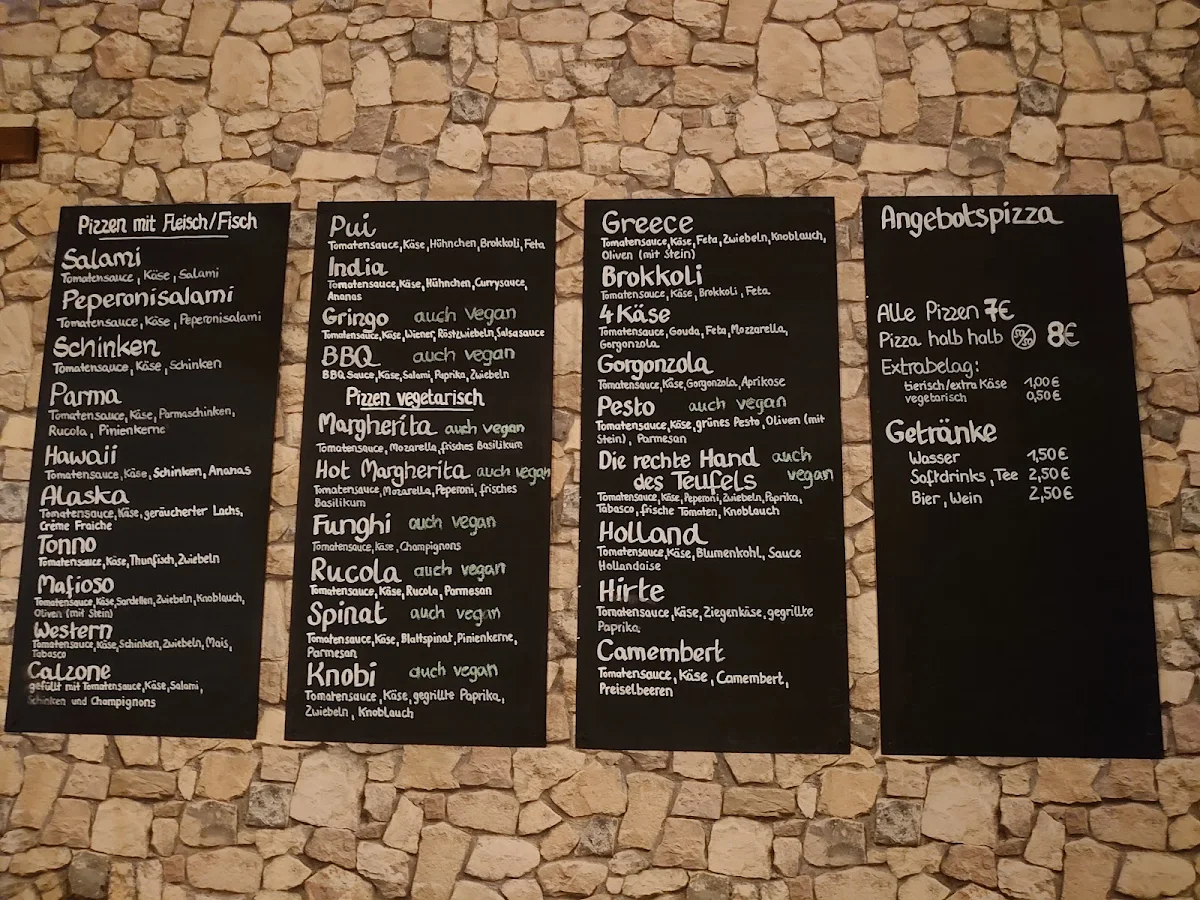 Pizzen mit Fleisch/Fisch
Salami
Tomatensauce, Käse, Salami
Peperonisalami
Tomatensauce, Käse, Peperonisalami
Schinken
Tomatensauce, Käse, Schinken
Parma
Tomatensauce, Käse, Parmaschinken,
Rucola, Pinienkerne
Hawaii
Tomatensauce, Käse, Schinken, Ananas
Alaska
Tomatensauce, Käse, geräucherter Lachs,
Crème Fraiche
Tonno
Tomatensauce, Käse, Thunfisch, Zwiebeln
Mafioso
Tomatensauce, Käse, Sardellen, Zwiebeln, Knoblauch,
Oliven (mit Stein)
Western
Tomatensauce, Käse, Schinken, Zwiebeln, Mais,
Tabasco
Calzone
gefüllt mit Tomatensauce, Käse, Salami,
Schinken und Champignons
Pui
Tomatensauce, Käse, Hühnchen, Brokkoli, Feta
India
Tomatensauce, Käse, Hühnchen, Currysauce,
Ananas
Gringo auch vegan
Tomatensauce, Käse, Wiener, Röstzwiebeln, Salsasauce
BBQ auch vegan
BBQ Sauce, Käse, Salami, Paprika, Zwiebeln
Pizzen vegetarisch
Margherita auch vegan
Tomatensauce, Mozarella, frisches Basilikum
Hot Margherita auch vegan
Tomatensauce, Mozarella, Peperoni, frisches
Basilikum
Funghi auch vegan
Tomatensauce, Käse, Champignons
Rucola auch vegan
Tomatensauce, Käse, Rucola, Parmesan
Spinat auch vegan
Tomatensauce, Käse, Blattspinat, Pinienkerne,
Parmesan
Knobi auch vegan
Tomatensauce, Käse, gegrillte Paprika,
Zwiebeln, Knoblauch
Greece
Tomatensauce, Käse, Feta, Zwiebeln, Knoblauch,
Oliven (mit Stein)
Brokkoli
Tomatensauce, Käse, Brokkoli, Feta
4 Käse
Tomatensauce, Gouda, Feta, Mozzarella,
Gorgonzola
Gorgonzola
Tomatensauce, Käse, Gorgonzola, Aprikose
Pesto auch vegan
Tomatensauce, Käse, grünes Pesto, Oliven (mit
Stein), Parmesan
Die rechte Hand auch
des Teufels vegan
Tomatensauce, Käse, Peperoni, Zwiebeln, Paprika,
Tabasco, frische Tomaten, Knoblauch
Holland
Tomatensauce, Käse, Blumenkohl, Sauce
Hollandaise
Hirte
Tomatensauce, Käse, Ziegenkäse, gegrillte
Paprika
Camembert
Tomatensauce, Käse, Camembert,
Preiselbeeren
Angebotspizza
Alle Pizzen 7€
Pizza halb halb 50/50 8€
Extrabelag:
tierisch/extra Käse 1,00€
vegetarisch 0,50€
Getränke
Wasser 1,50€
Softdrinks, Tee 2,50€
Bier, Wein 2,50€